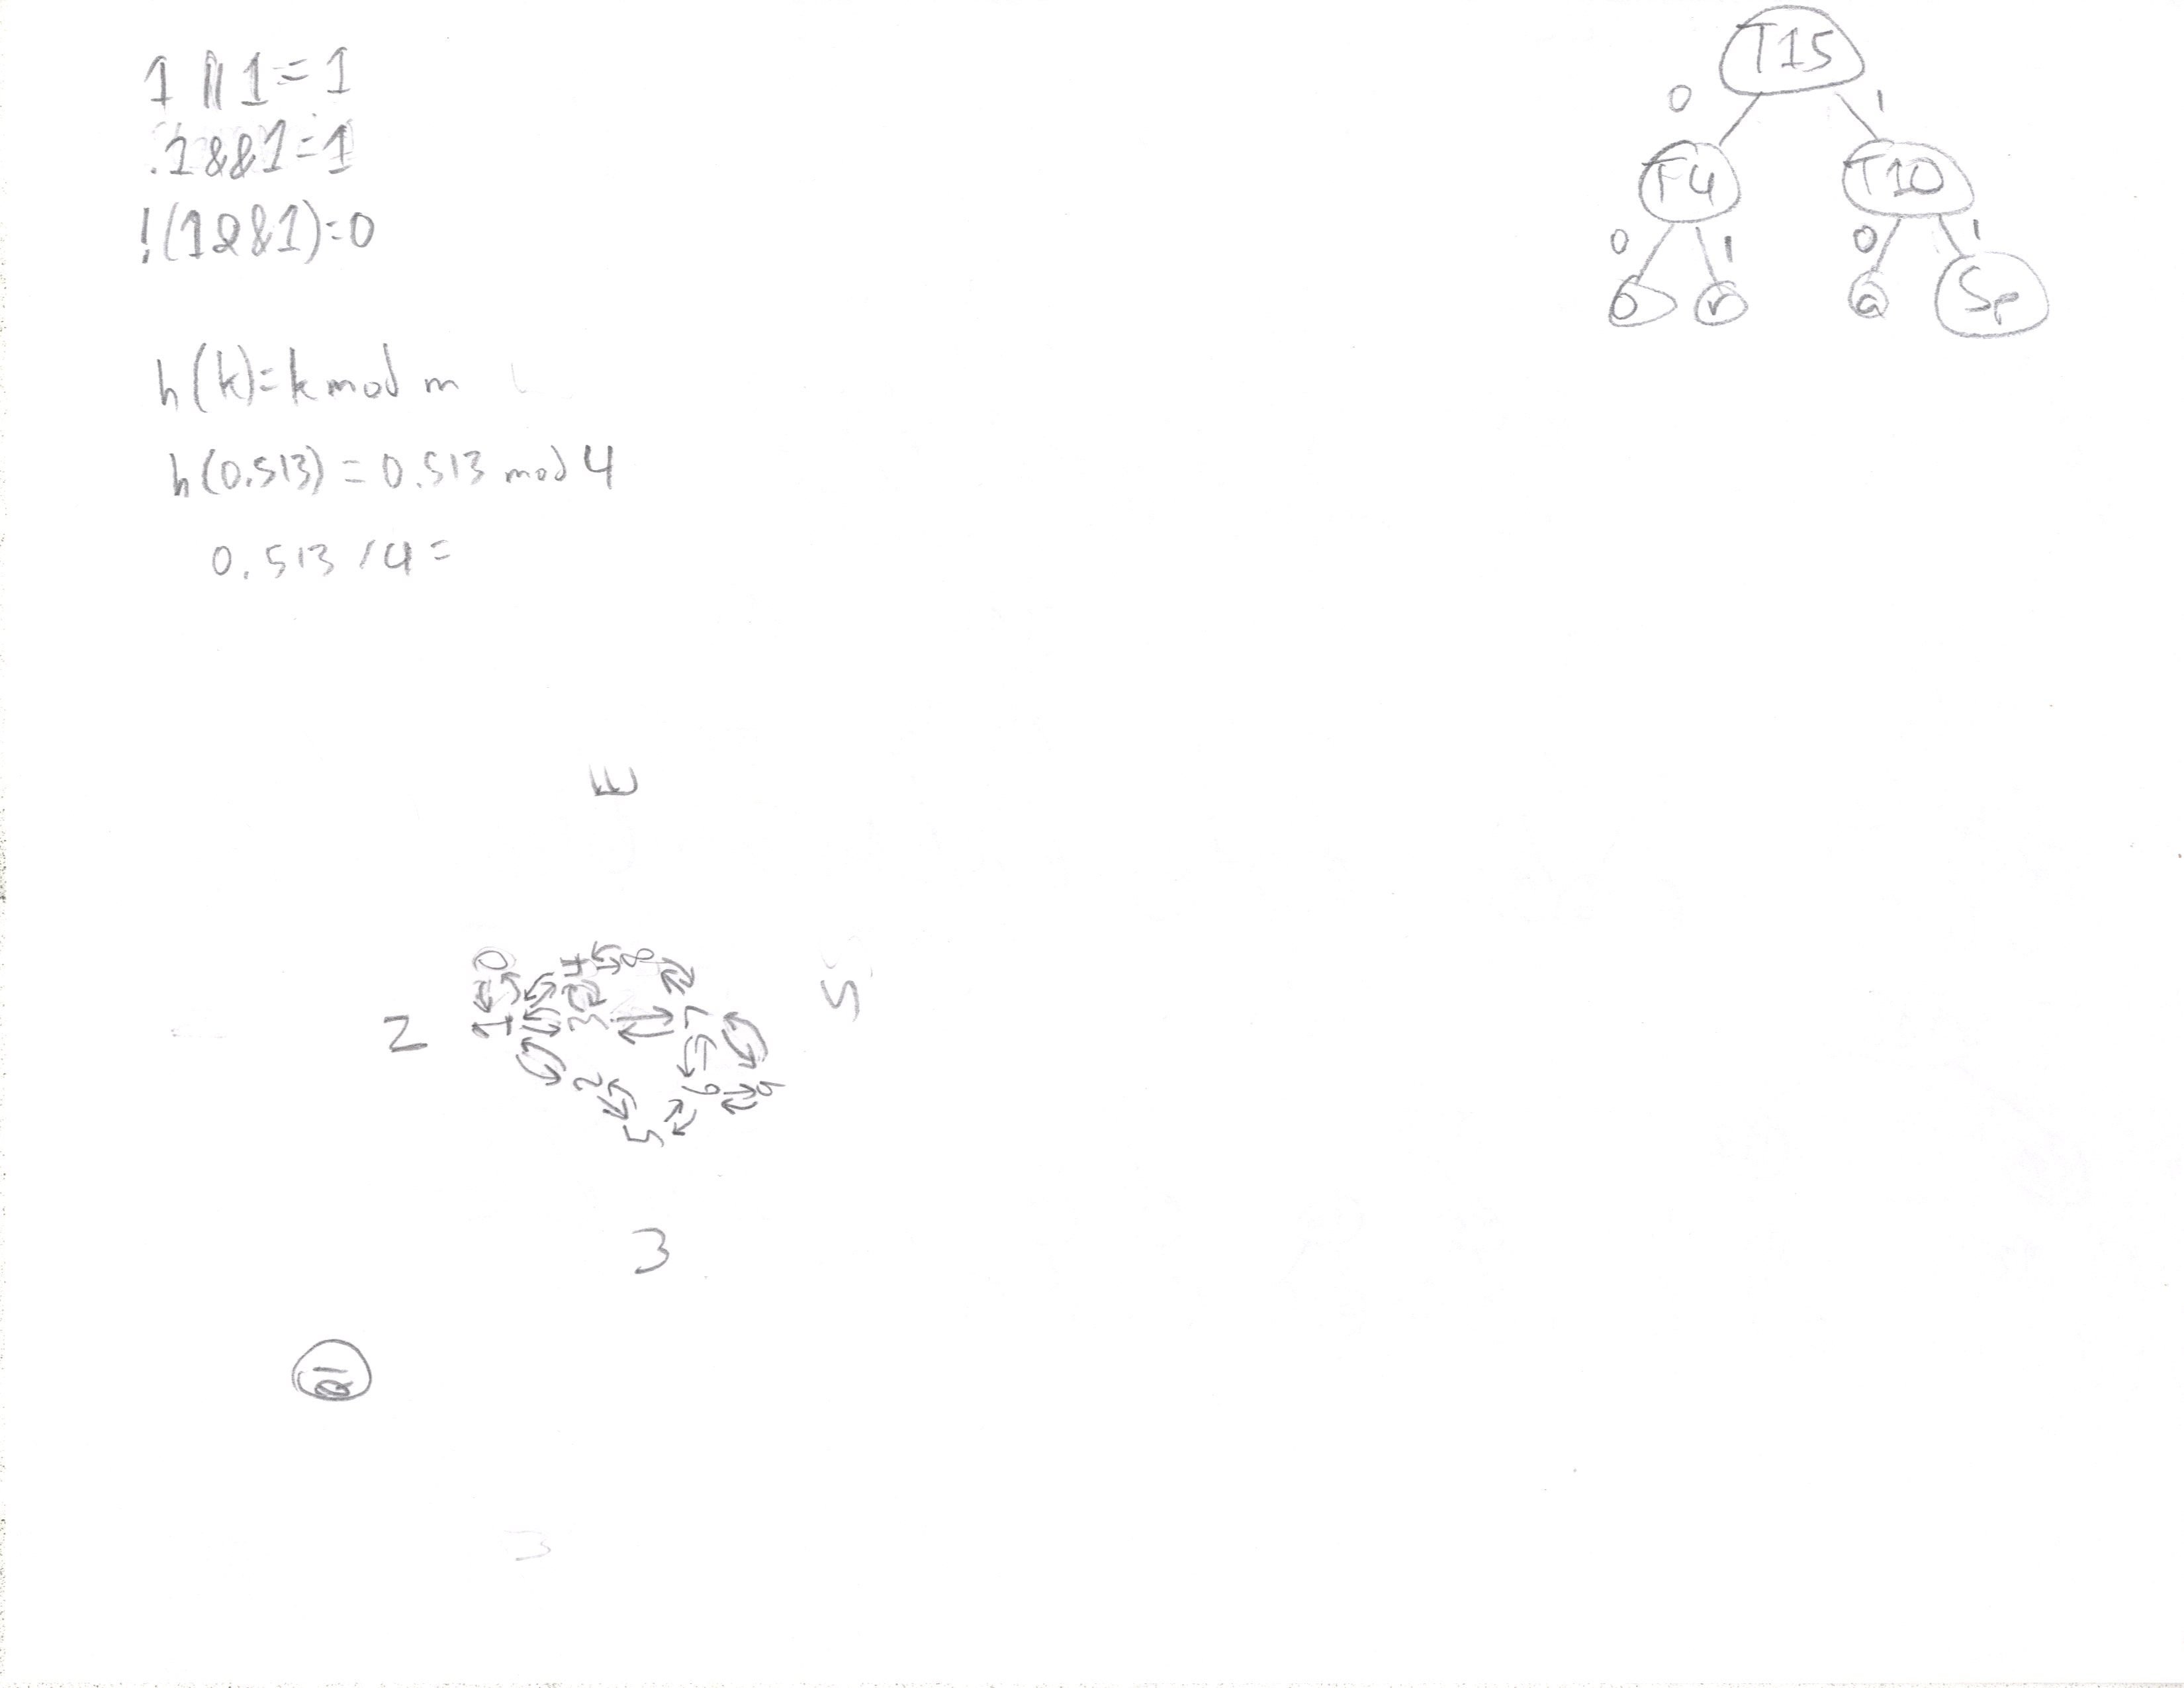 1 || 1 = 1
1 && 1 = 1
!(1 && 1) = 0
h(k) = k mod m
h(0.513) = 0.513 mod 4
0.513 / 4 =
T15
0 1
T4 T10
0 1 0 1
o r a Sp
E
0 4 8
S
2 1 3 7
2 6 9
5
3